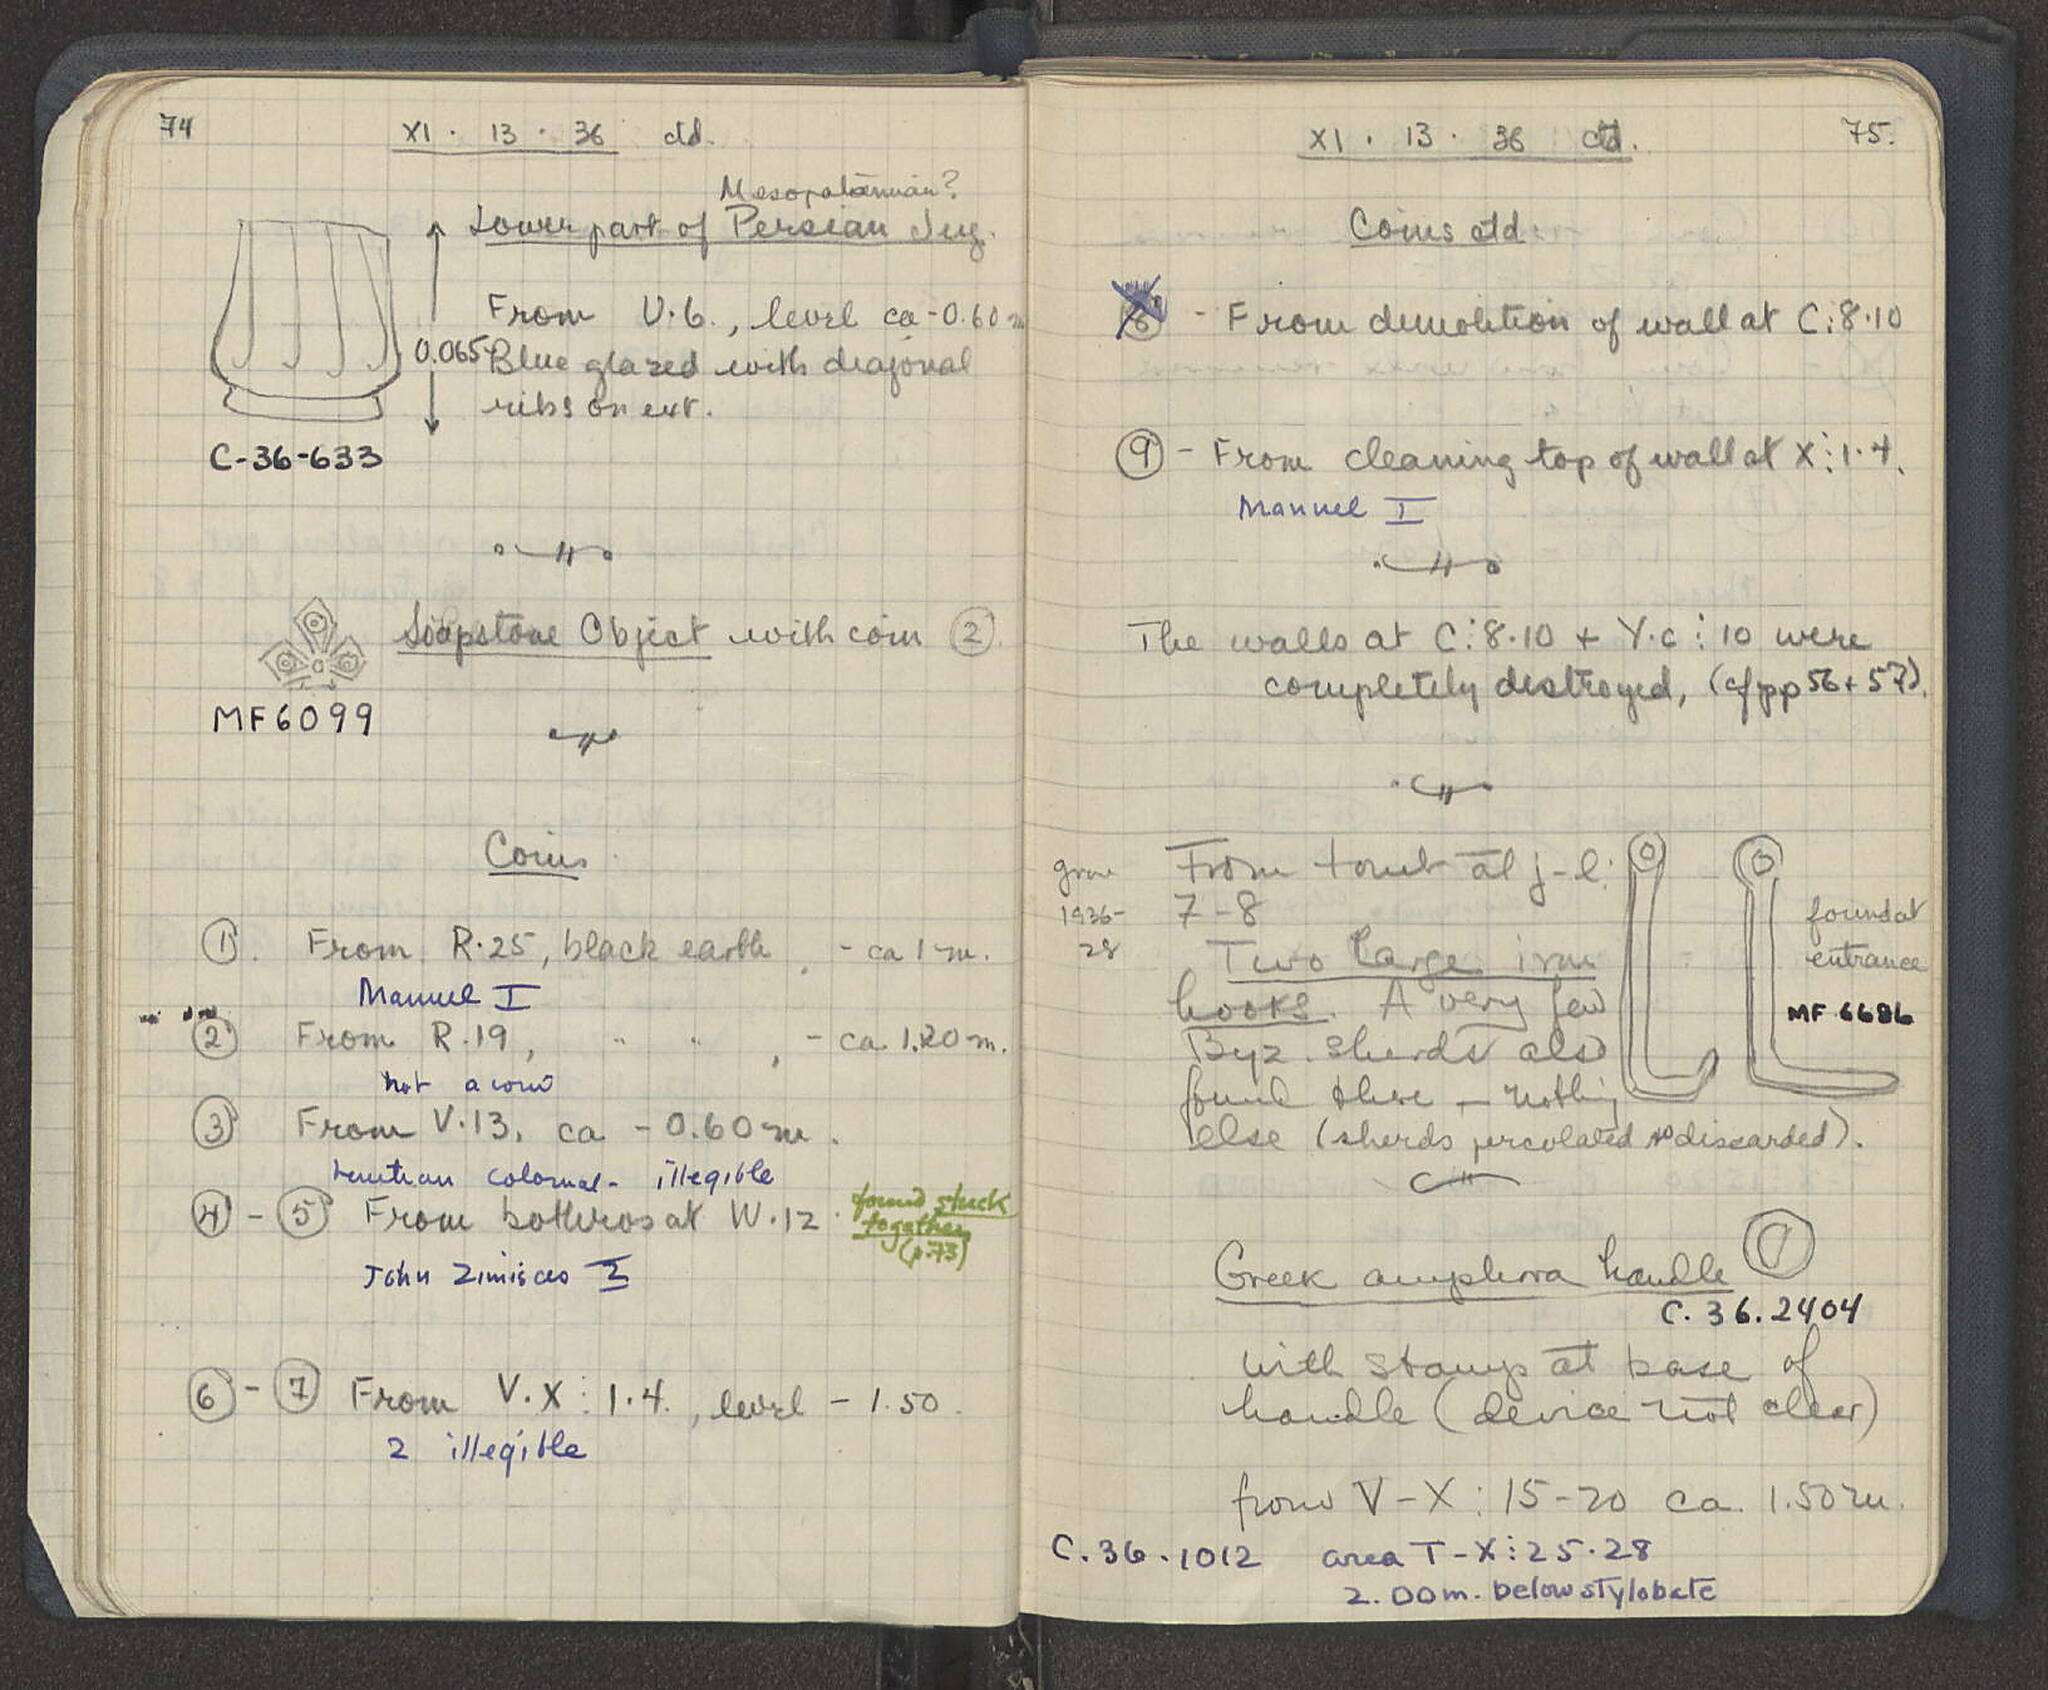 74
XI · 13 · 36 ctd.
Mesopotamian?
Lower part of Persian Jug.
From V.6., level ca -0.60 m
0.065
Blue glazed with diagonal
ribs on ext.
C-36-633
Soapstone Object with coin ②
MF6099
Coins
① From R.25, black earth, - ca 1 m.
Manuel I
② From R.19, " " , - ca 1.20 m.
not a coin
③ From V.13, ca - 0.60 m.
colonial - illegible
④ - ⑤ From bothros at W.12.
found stuck
together
(p.73)
John Zimisces I
⑥ - ⑦ From V.X : 1.4., level - 1.50.
2 illegible
XI · 13 · 36 ctd.
75.
Coins ctd.
⑧ - From demolition of wall at C:8.10
⑨ - From cleaning top of wall at X:1.4.
Manuel I
The walls at C:8.10 + Y.C:10 were
completely destroyed, (cf pp 56 + 57).
grave
1936-
28
From tomb at j-l:
7-8
Two large iron
hooks. A very few
Byz. sherds also
found there — nothing
else (sherds discarded).
found at
entrance
MF.6686
Greek amphora handle
C.36.2404
with stamp at base of
handle (device not clear)
from V-X: 15-20 ca. 1.50 m.
C.36.1012 area T-X:25.28
2.00m. below stylobate